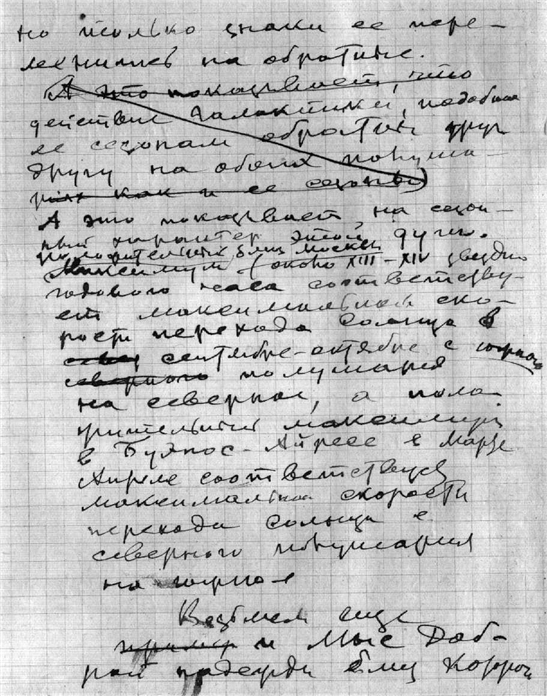 но только знаки ее пере-
менились на обратные.
А это показывает, что
действие Галактики, подобная
ее сезонам обратны друг
другу на обоих полуша-
риях как и ее сезоны
А это показывает, на сезон-
ный характер этой дуги.
Положительный близ Москвы
Максимум (около XIII–XIV звездно
годового часа соответству-
ет максимальной ско-
рости перехода Солнца в
сентябре-октябре с южного
северного полушария
на северное, а поло-
жительный максимум
в Буэнос-Айресе в марте
Апреле соответствует
максимальной скорости
перехода солнца с
северного полушария
на южное
Возьмем еще
пример и Мыс Доб-
рой надежды близ